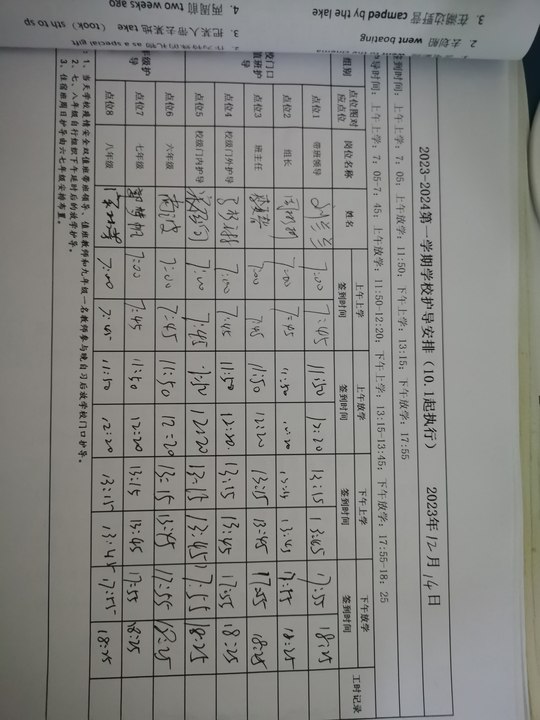 3. 在湖边野营 camped by the lake
2. 去划船 went boating
4. 两周前 two weeks ago
3. 把某人带去某地 take (took) sth to sp
2023-2024第一学期学校护导安排（10.1起执行） 2023年12月14日
签到时间：上午上学：7：05；上午放学：11:50；下午上学：13:15；下午放学：17:55
护导时间：上午上学：7：05-7：45；上午放学：11:50-12:20；下午上学：13:15-13:45；下午放学：17:55-18：25
组别 点位图对应点位 岗位名称 姓名 上午上学签到时间 上午放学签到时间 下午上学签到时间 下午放学签到时间 工时记录
点位1 带班领导 7:00 7:45 11:50 12:20 13:15 13:45 17:55 18:25
点位2 组长 7:00 7:45 11:50 12:20 13:15 13:45 17:55 18:25
点位3 班主任 7:00 7:45 11:50 12:20 13:15 13:45 17:55 18:25
点位4 校级门外护导 7:00 7:45 11:50 12:20 13:15 13:45 17:55 18:25
点位5 校级门内护导 7:00 7:45 11:50 12:20 13:15 13:45 17:55 18:25
点位6 六年级 7:00 7:45 11:50 12:20 13:15 13:45 17:55 18:25
点位7 七年级 7:00 7:45 11:50 12:20 13:15 13:45 17:55 18:25
点位8 八年级 7:00 7:45 11:50 12:20 13:15 13:45 17:55 18:25
1、当天学校疫情安全双值班带班领导、值班教师和九年级一名教师参与晚自习后放学校门口护导。
2、七、八年级自行组织下午延时后的放学护导。
3、住宿班周日护导由六七年级安排布置。